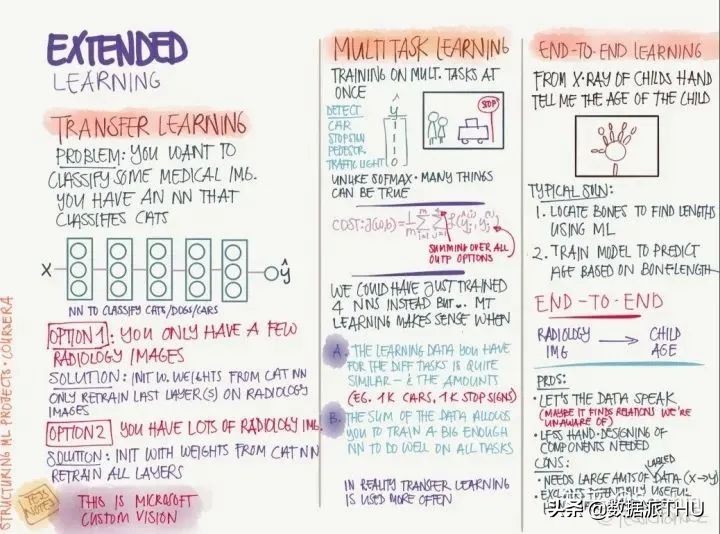 EXTENDED
LEARNING
TRANSFER LEARNING
PROBLEM: YOU WANT TO
CLASSIFY SOME MEDICAL IMG.
YOU HAVE AN NN THAT
CLASSIFIES CATS
X
ŷ
NN TO CLASSIFY CATS/DOGS/CARS
OPTION 1: YOU ONLY HAVE A FEW
RADIOLOGY IMAGES
SOLUTION: INIT W. WEIGHTS FROM CAT NN
ONLY RETRAIN LAST LAYER(S) ON RADIOLOGY
IMAGES
OPTION 2 YOU HAVE LOTS OF RADIOLOGY IMG.
SOLUTION: INIT WITH WEIGHTS FROM CAT NN
RETRAIN ALL LAYERS
THIS IS MICROSOFT
CUSTOM VISION
TESS
NOTES
STRUCTURING ML PROJECTS · COURSERA
MULTI TASK LEARNING
TRAINING ON MULT. TASKS AT
ONCE
DETECT ŷ
CAR 1
STOPSIGN 1
PEDESTR. 1
TRAFFIC LIGHT 0
STOP
UNLIKE SOFMAX · MANY THINGS
CAN BE TRUE
COST: J(w,b) =
SUMMING OVER ALL
OUTP OPTIONS
WE COULD HAVE JUST TRAINED
4 NNS INSTEAD BUT... MT
LEARNING MAKES SENSE WHEN
A. THE LEARNING DATA YOU HAVE
FOR THE DIFF TASKS IS QUITE
SIMILAR - & THE AMOUNTS
(EG. 1K CARS, 1K STOP SIGNS)
B. THE SUM OF THE DATA ALLOWS
YOU TO TRAIN A BIG ENOUGH
NN TO DO WELL ON ALL TASKS
IN REALITY TRANSFER LEARNING
IS USED MORE OFTEN
END-TO-END LEARNING
FROM X-RAY OF CHILDS HAND
TELL ME THE AGE OF THE CHILD
TYPICAL SOLN:
1. LOCATE BONES TO FIND LENGTHS
USING ML
2. TRAIN MODEL TO PREDICT
AGE BASED ON BONELENGTH
END-TO-END
RADIOLOGY → CHILD
IMG AGE
PROS:
· LET'S THE DATA SPEAK
(MAYBE IT FINDS RELATIONS WE'RE
UNAWARE OF)
· LESS HAND-DESIGNING OF
COMPONENTS NEEDED
CONS:
· NEEDS LARGE AMTS OF LABLED DATA (X→Y)
· POTENTIALLY USEFUL
头条 @数据派THU